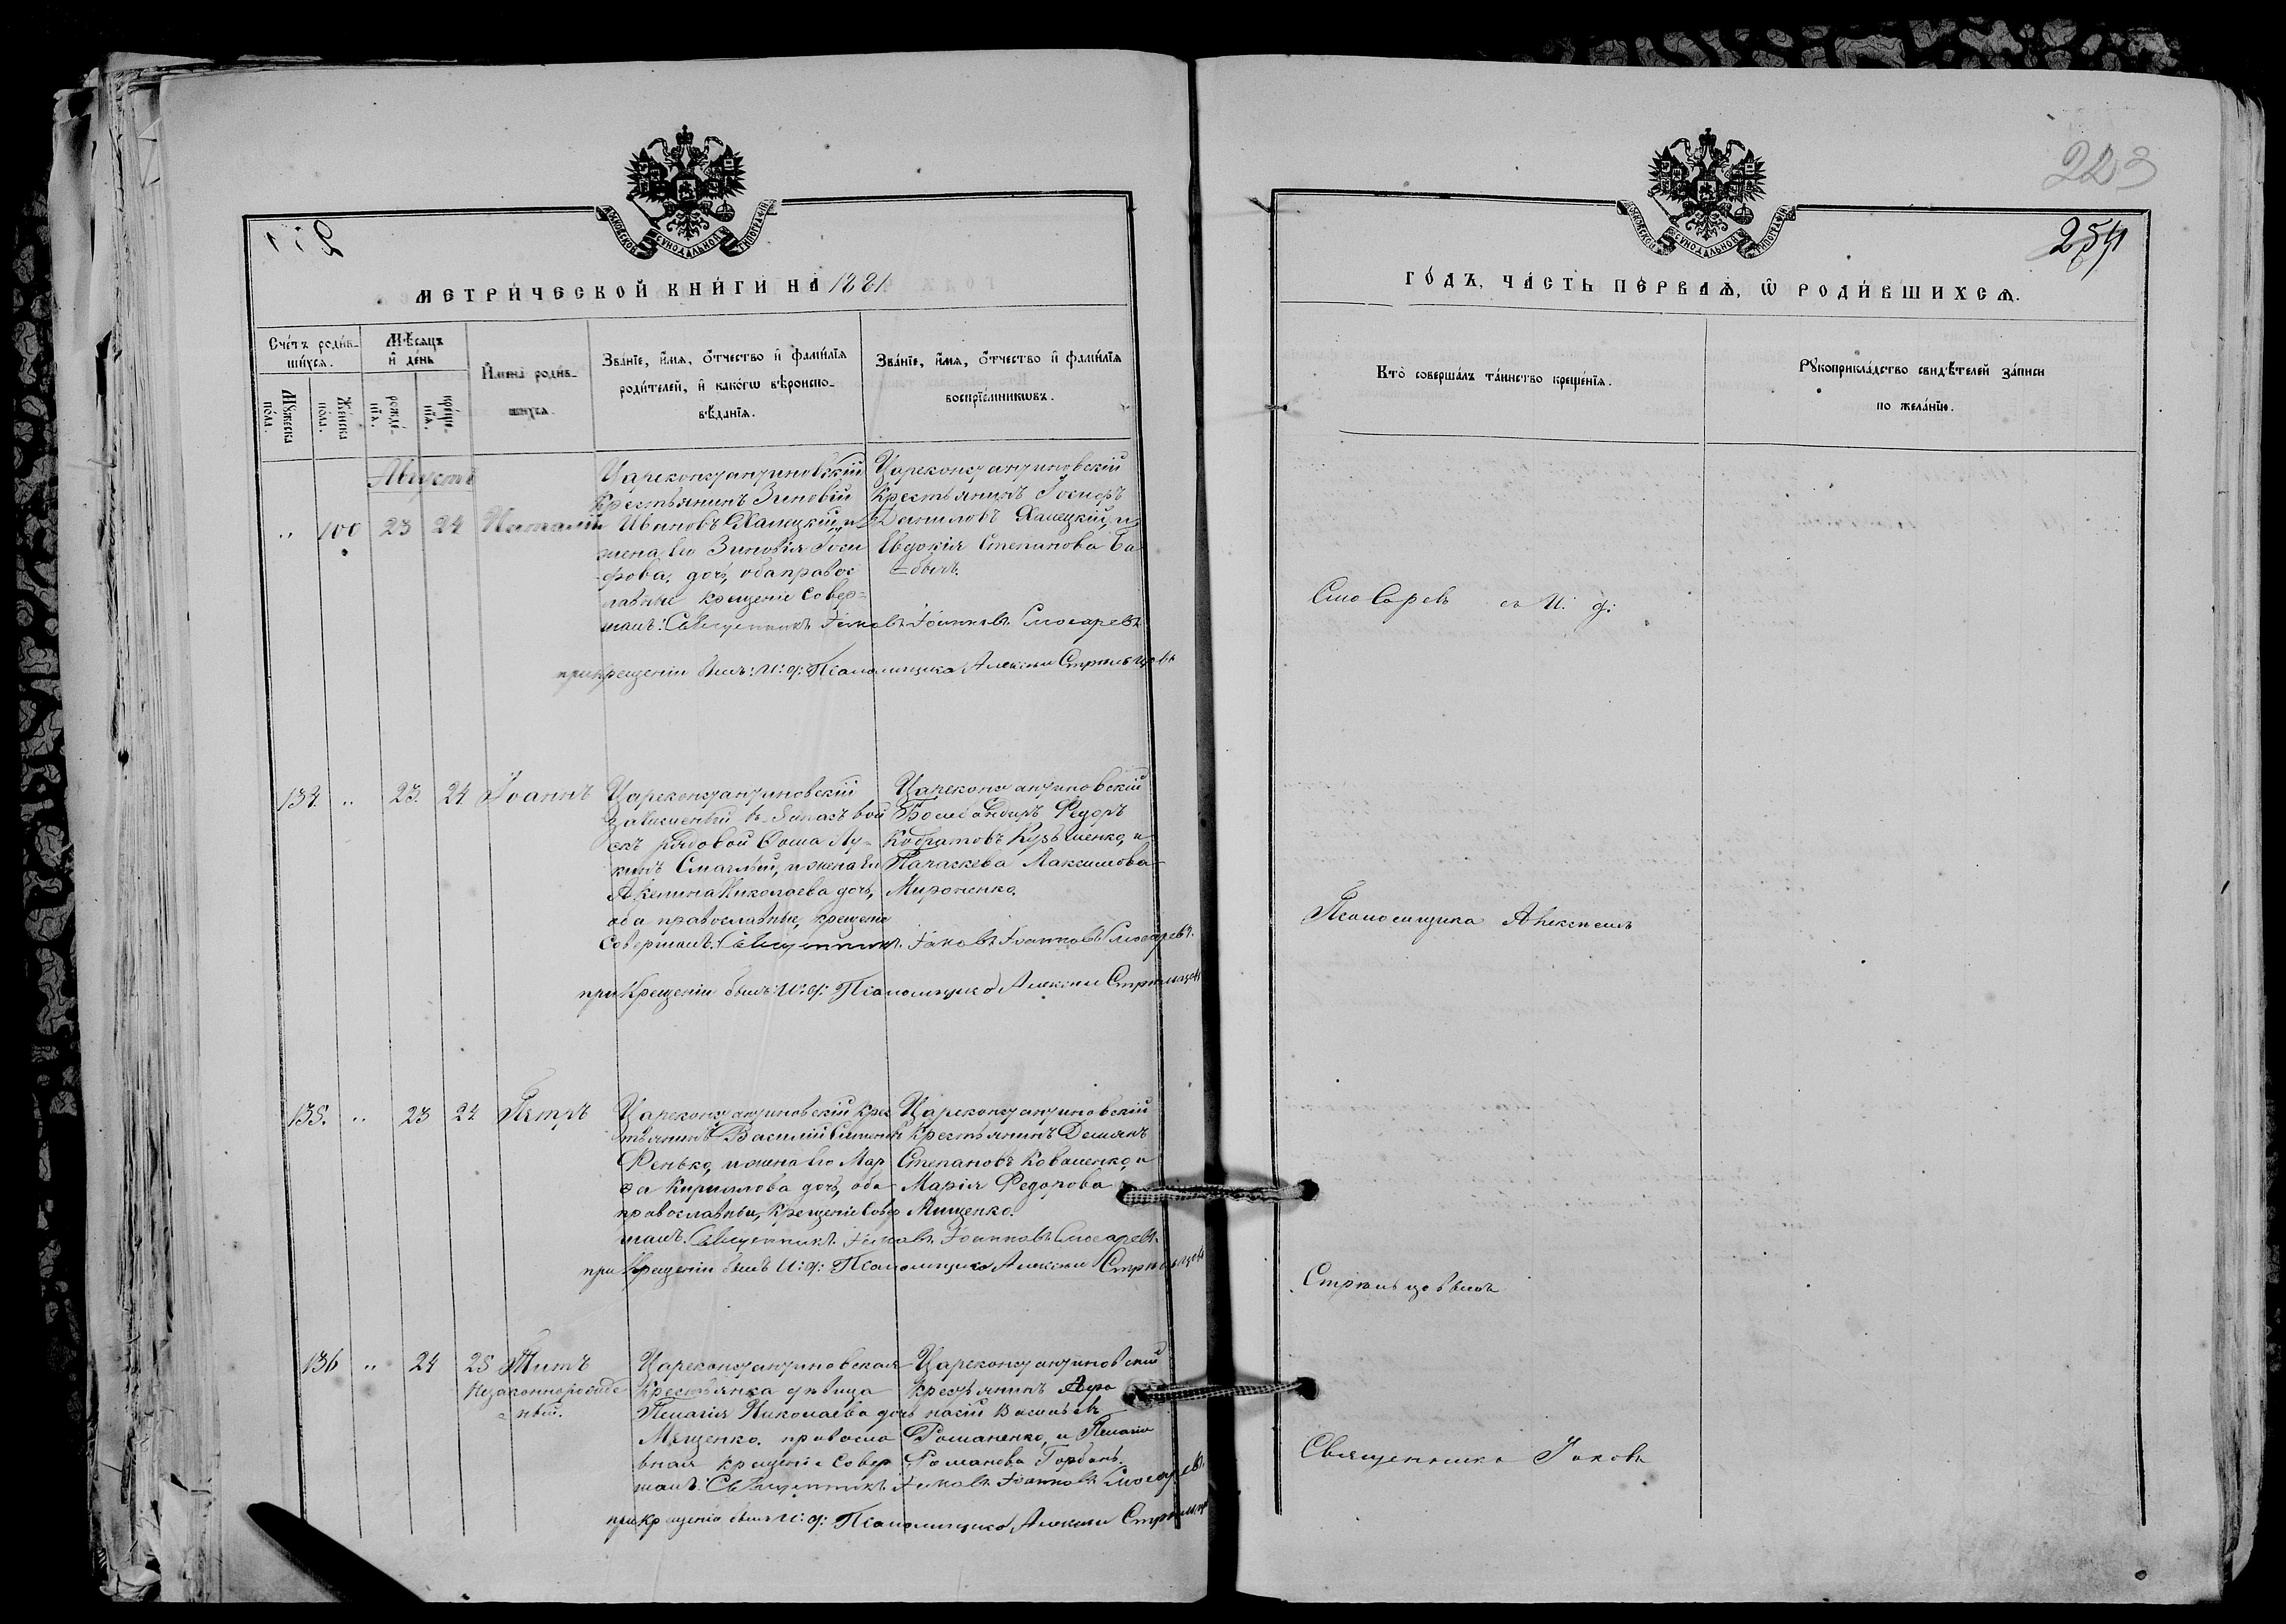 223
254
МОСКОВСКОЙ СѴНОДАЛЬНОЙ ТИПОГРАФІИ
МЕТРИ́ЧЕСКОЙ КНИ́ГИ НА 1881
Сче́тъ роди́в-
шихся.
Мѣ́сяцъ
и҆ де́нь
Мꙋ́жеска
по́ла.
Же́нска
по́ла.
рожде́-
нїя.
креще́-
нїя.
И҆мена̀ роди́в-
шихся.
Зва́нїе, и҆́мя, ѻ҆́тчество и҆ фами́лїя
роди́телей, и҆ како́гѡ вѣроиспо-
вѣ́данїя.
Зва́нїе, и҆́мя, ѻ҆́тчество и҆ фами́лїя
воспрїе́мникѡвъ.
Августъ
„ 100 23 24 Наталія
Цареконстантиновскій
Крестьянинъ Зиновій
Ивановъ Халецкій, и
жена его Зиновія Іоси
фова, дочь, оба правос
лавные крещеніе совер=
шалъ: Священникъ Іаковъ Іоанновъ Слюсаревъ
Цареконстантиновскій
Крестьянинъ Іосифъ
Даниловъ Халецкій, и
Евдокія Степанова Ба
=бычъ.
при крещеніи былъ: И: д: Псаломщика Алексѣй Стрѣльцовъ
134 „ 23. 24 Іоаннъ
Цареконстантиновскій
рядовой Ѳома Лу-
кинъ и жена его
Акилина Николаева дочь,
оба православные, крещеніе
совершалъ: Священникъ Іаковъ Іоанновъ Слюсаревъ.
Цареконстантиновскій
Бомбандиръ Федоръ
Кодратовъ Кузьменко, и
Параскева Максимова
Мироненко.
при крещеніи былъ: И: д: Псаломщика Алексѣй Стрѣльцовъ
135. „ 23 24 Петръ
Цареконстантиновскій Крес
тьянинъ Василій Симеоновъ
Фенько, и жена его Мар
ѳа Кирилова дочь, оба
православные, Крещеніе совер
шалъ: Священникъ Іаковъ Іоанновъ Слюсаревъ.
Цареконстантиновскій
Крестьянинъ Демянъ
Степановъ Коваленко, и
Марія Федорова
Мищенко.
при Крещеніи былъ И: д: Псаломщика Алексѣй Стрѣльцовъ
136 „ 24 25 Титъ
Незаконнорожде
=ный.
Цареконстантиновская
Крестьянка дѣвица
Пелагія Николаева дочь
Мищенко. правосла
вная крещеніе совер
шалъ: Священникъ Іаковъ Іоанновъ Слюсаревъ
Цареконстантиновскій
крестьянинъ Афа
насій Васильевъ
Романенко, и Пелагія
Романова Горбань.
при крещеніи былъ И: д: Псаломщика Алексѣй Стрѣльцовъ
МОСКОВСКОЙ СѴНОДАЛЬНОЙ ТИПОГРАФІИ
ГО́ДЪ, ЧА́СТЬ ПЕ́РВАѦ, Ѽ РОДИ́ВШИХСѦ.
Кто̀ соверша́лъ та́инство креще́нїя.
Рꙋкоприкла́дство свидѣ́телей за́писи
по жела́нїю.
Слюсаревъ съ И: д:
Псаломщика Алексѣемъ
Стрѣльцовымъ
Священника Іаковъ